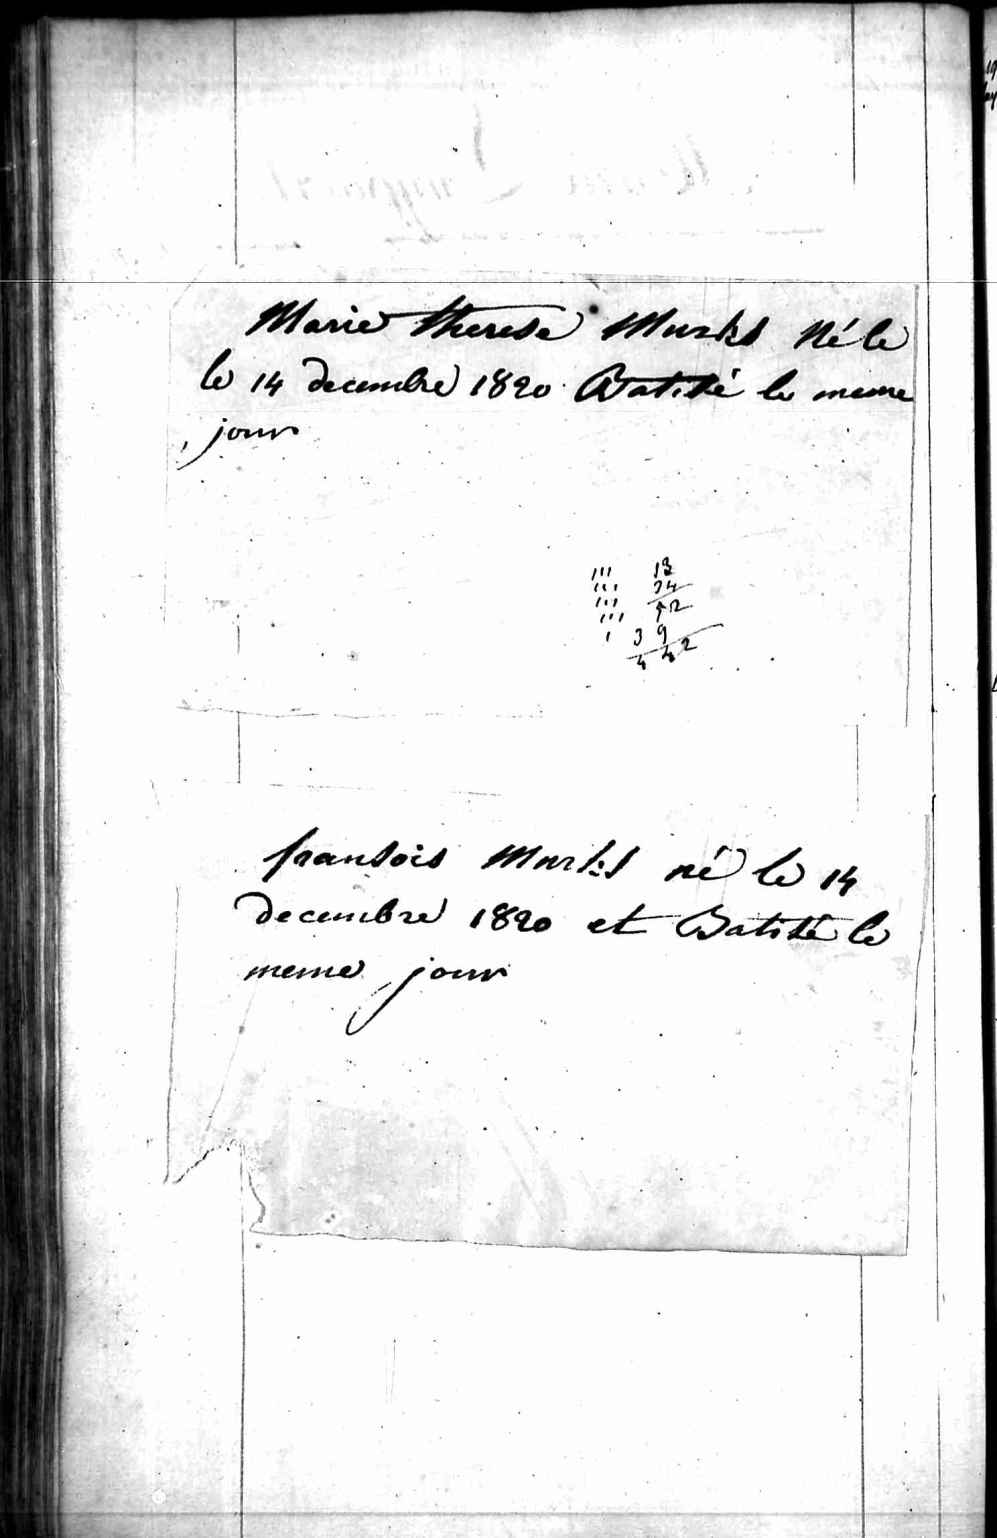 Marie therese Murks Né le
le 14 decembre 1820 Batisé le meme
jour
III 13
III 34
III 42
III
I 3 9
4 4 2
fransois Murks né le 14
decembre 1820 et Batisé le
meme jour